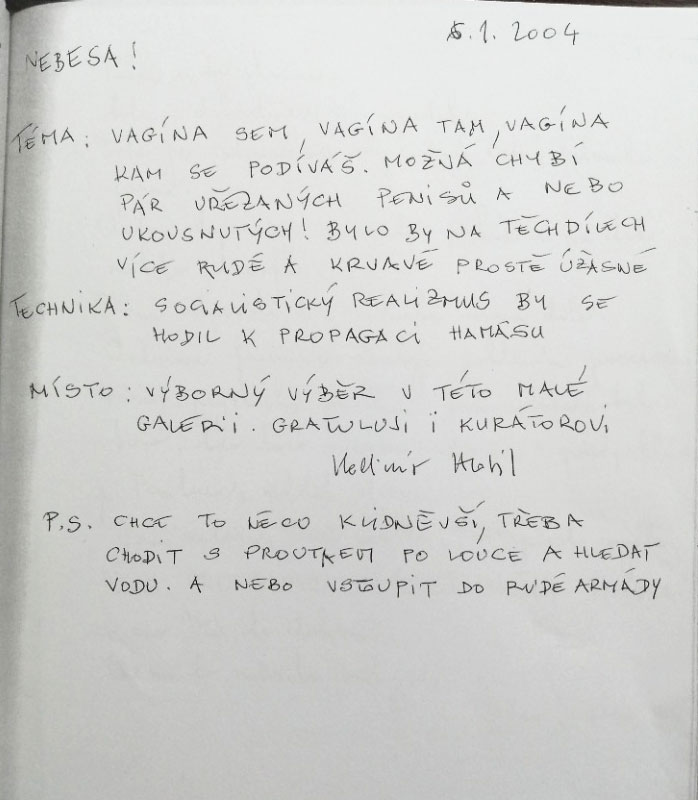 5.1.2004
NEBESA!
TÉMA: VAGÍNA SEM, VAGÍNA TAM, VAGÍNA
KAM SE PODÍVÁŠ. MOŽNÁ CHYBÍ
PÁR UŘEZANÝCH PENISŮ A NEBO
UKOUSNUTÝCH! BYLO BY NA TĚCH DÍLECH
VÍCE RUDÉ A KRVAVÉ PROSTĚ ÚŽASNÉ
TECHNIKA: SOCIALISTICKÝ REALIZMUS BY SE
HODIL K PROPAGACI HAMÁSU
MÍSTO: VÝBORNÝ VÝBĚR V TÉTO MALÉ
GALERII. GRATULUJI I KURÁTOROVI
Vladimír
P.S. CHCE TO NĚCO KLIDNĚVŠÍ, TŘEBA
CHODIT S PROUTKEM PO LOUCE A HLEDAT
VODU. A NEBO VSTOUPIT DO RUDÉ ARMÁDY